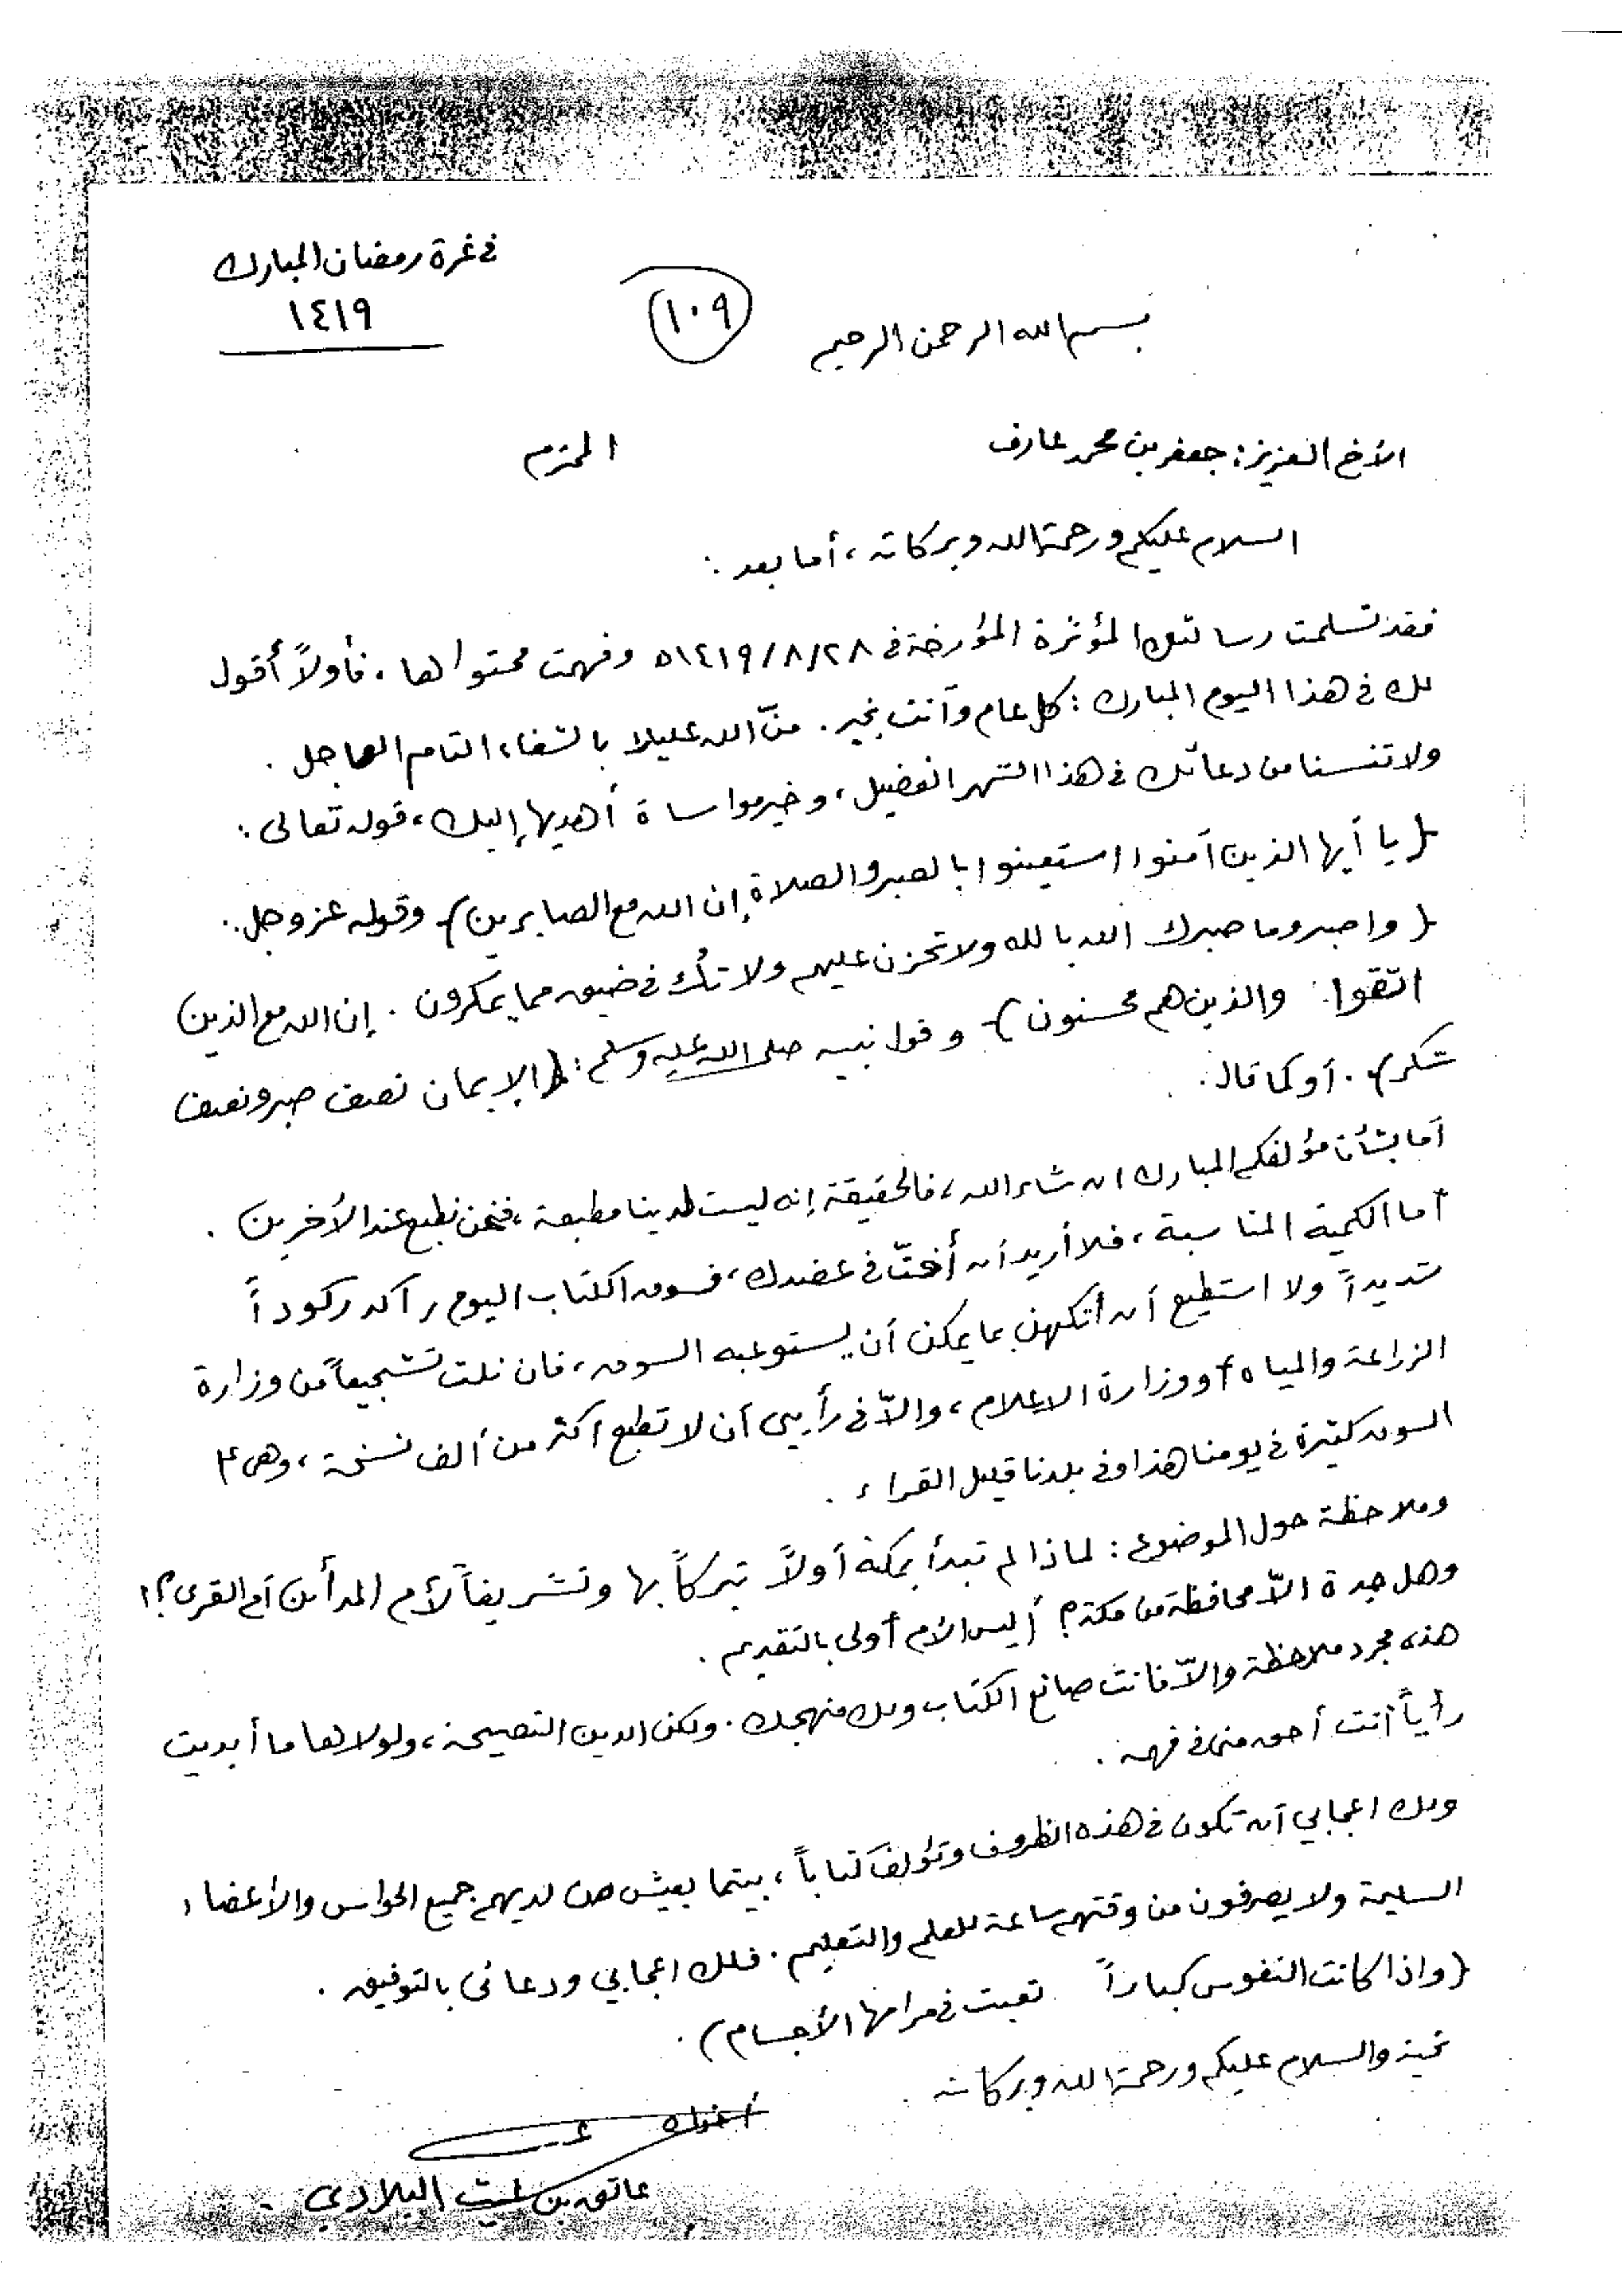 في غرة رمضان المبارك
١٤١٩
١٠٩
بسم الله الرحمن الرحيم
الأخ العزيز : جعفر بن محمد عارف المحترم
السلام عليكم ورحمة الله وبركاته ، أما بعد :
فقد تسلمت رسالتك المؤثرة المؤرخة في ١٤١٩/٨/٢٨ه وفهمت محتواها . فأولاً أقول
لك في هذا اليوم المبارك : كل عام وأنت بخير . منّ الله عليك بالشفاء التام العاجل .
ولا تنسنا من دعائك في هذا الشهر الفضيل ، وخير مواساة أهديها إليك ، قوله تعالى :
{ يا أيها الذين آمنوا استعينوا بالصبر والصلاة إن الله مع الصابرين } وقوله عز وجل :
{ واصبر وما صبرك إلا بالله ولا تحزن عليهم ولا تك في ضيق مما يمكرون . إن الله مع الذين
اتقوا والذين هم محسنون } وقول نبيه صلى الله عليه وسلم : { الإيمان نصف صبر ونصف
شكر } . أو كما قال .
أما بشأن مؤلفكم المبارك ان شاء الله ، فالحقيقة إنه ليست لدينا مطبعة ، فنحن نطبع عند الآخرين .
أما الكمية المناسبة ، فلا أريد أن أفتّ في عضدك ، فسوق الكتاب اليوم راكد ركوداً
شديداً ولا استطيع أن أتكهن بما يمكن أن يستوعبه السوق ، فان نلت تشجيعاً من وزارة
الزراعة والمياه أو وزارة الاعلام ، والاّ في رأيي أن لا تطبع أكثر من ألف نسخة ، وهى
السوق كثيرة في يومنا هذا وفي بلدنا قليل القراء .
وملاحظة حول الموضوع : لماذا لم تبدأ بمكة أولاً تبركاً بها وتشريفاً لأم المدائن أم القرى ؟!
وهل جدة الاّ محافظة من مكة ؟ أليس الأم أولى بالتقديم .
هذه مجرد ملاحظة والاّ فانت صانع الكتاب ولك منهجك . ولكن الدين النصيحة ، ولولاها ما أبديت
رأياً أنت أحق مني في فهمه .
ولك اعجابي أن تكون في هذه الظروف وتؤلف كتاباً ، بينما يعيش من لديهم جميع الحواس والأعضاء
السليمة ولا يصرفون من وقتهم ساعة للعلم والتعليم . فلك اعجابي ودعائي بالتوفيق .
( واذا كانت النفوس كباراً تعبت في مرامها الأجسام ) .
تحية والسلام عليكم ورحمة الله وبركاته .
أخوك
عاتق بن غيث البلادي